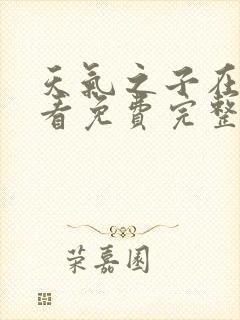 天氣之子在
看免費完整
荣嘉園